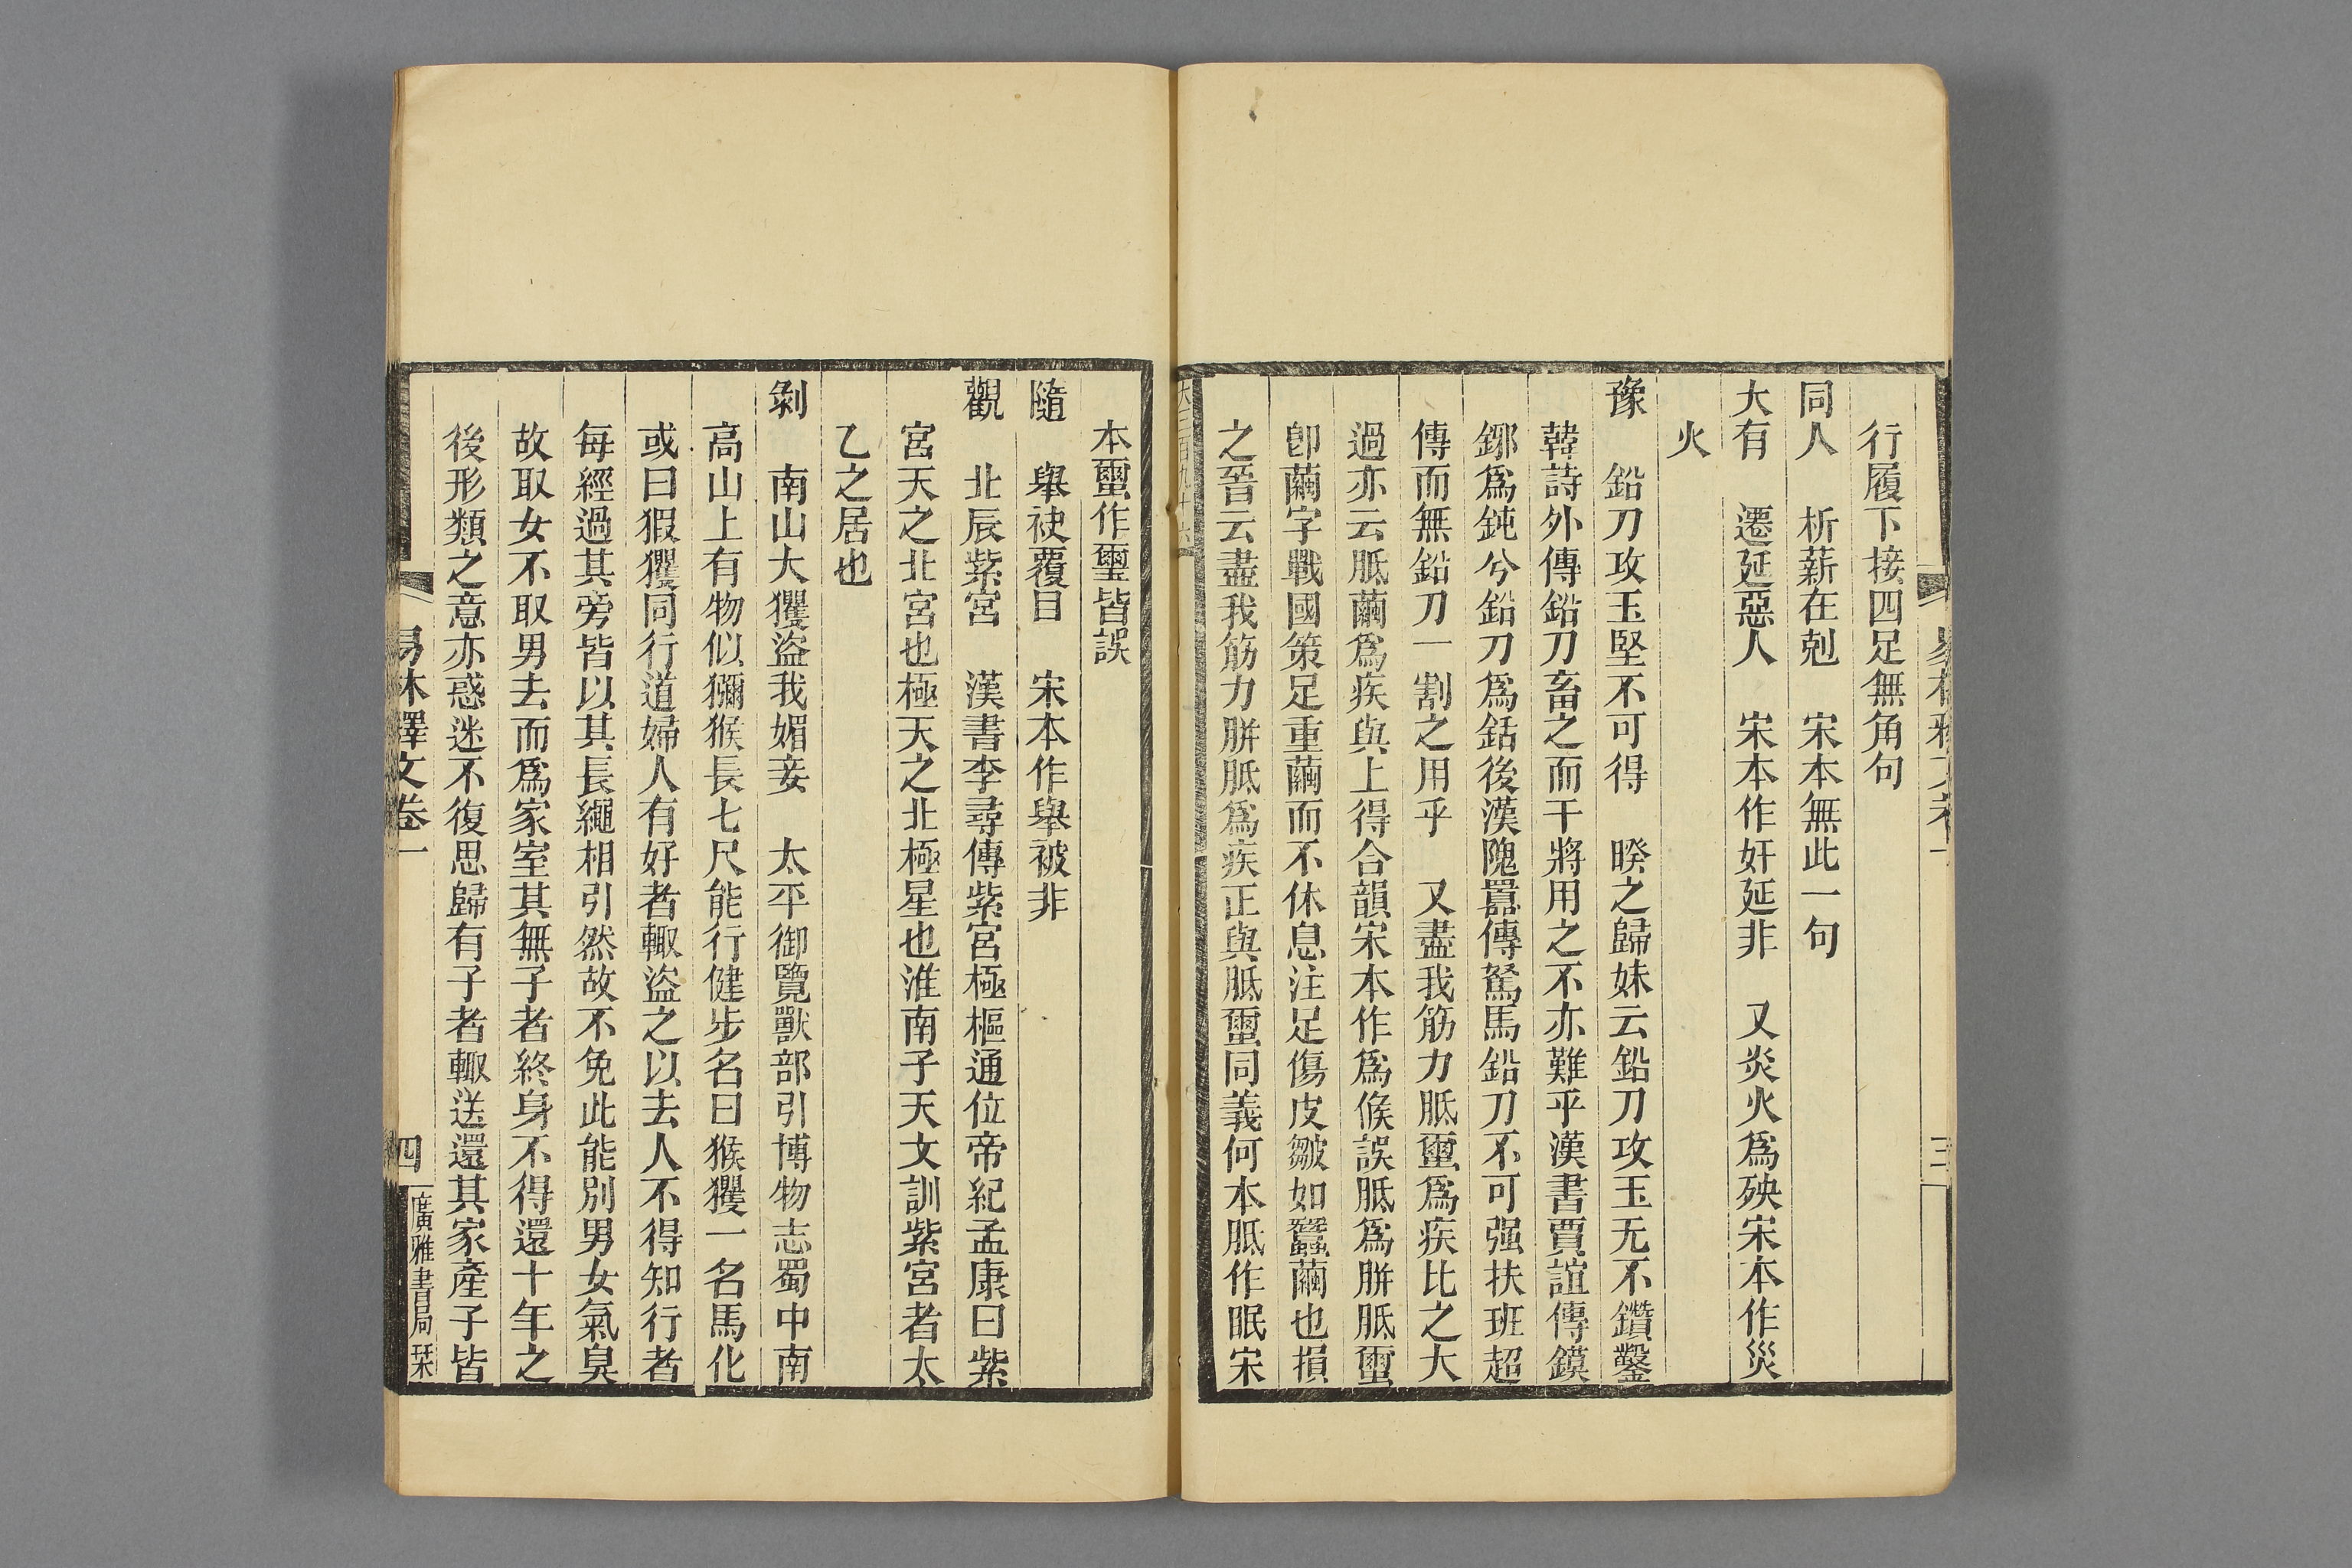 行履下接四足無角句
同人　析薪在剋　宋本無此一句
大有　遷延惡人　宋本作奸延非　又炎火爲殃宋本作災
火
豫　鉛刀攻玉堅不可得　暌之歸妹云鉛刀攻玉无不鑽鑿
韓詩外傳鉛刀畜之而干將用之不亦難乎漢書賈誼傳鏌
鋣爲鈍兮鉛刀爲銛後漢隗囂傳駑馬鉛刀不可强扶班超
傳而無鉛刀一割之用乎　又盡我筋力胝璽爲疾比之大
過亦云胝繭爲疾與上得合韻宋本作爲候誤胝爲胼胝壐
卽繭字戰國策足重繭而不休息注足傷皮皺如蠶繭也損
之晉云盡我筋力胼胝爲疾正與胝壐同義何本胝作眠宋
大三百九十六
三
本壐作璽皆誤
隨　舉袂覆目　宋本作舉被非
觀　北辰紫宮　漢書李尋傳紫宮極樞通位帝紀孟康曰紫
宮天之北宮也極天之北極星也淮南子天文訓紫宮者太
乙之居也
剝　南山大玃盜我媚妾　太平御覽獸部引博物志蜀中南
高山上有物似獼猴長七尺能行健步名曰猴玃一名馬化
或曰猳玃同行道婦人有好者輙盜之以去人不得知行者
每經過其旁皆以其長繩相引然故不免此能別男女氣臭
故取女不取男去而爲家室其無子者終身不得還十年之
後形類之意亦惑迷不復思歸有子者輙送還其家產子皆
易林釋文卷一
四
廣雅書局栞